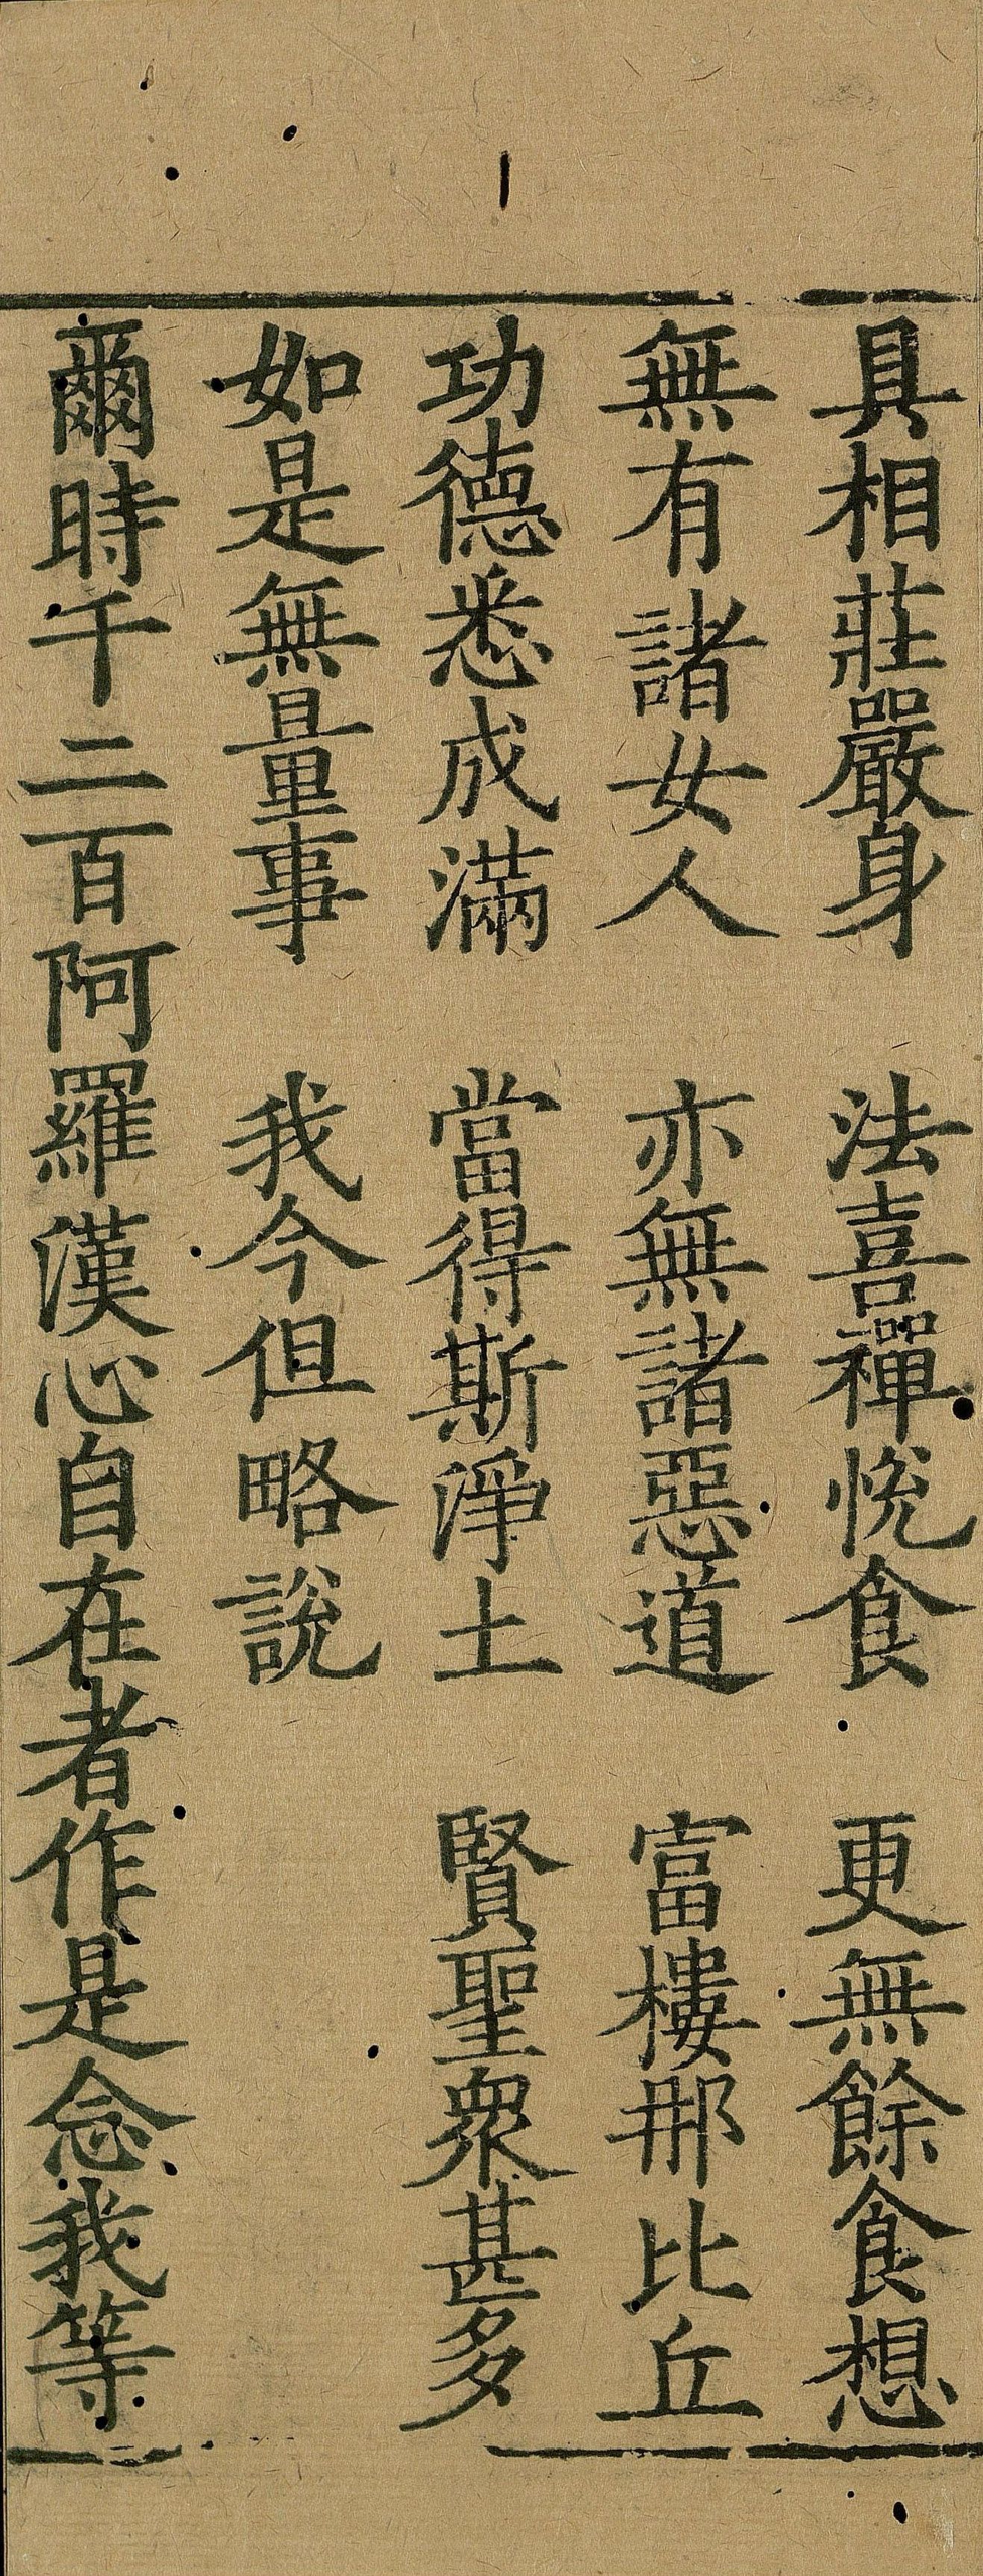 具相莊嚴身　法喜禪悅食　更無餘食想
無有諸女人　亦無諸惡道　富樓那比丘
功德悉成滿　當得斯淨土　賢聖衆甚多
如是無量事　我今但略說
爾時千二百阿羅漢心自在者作是念我等